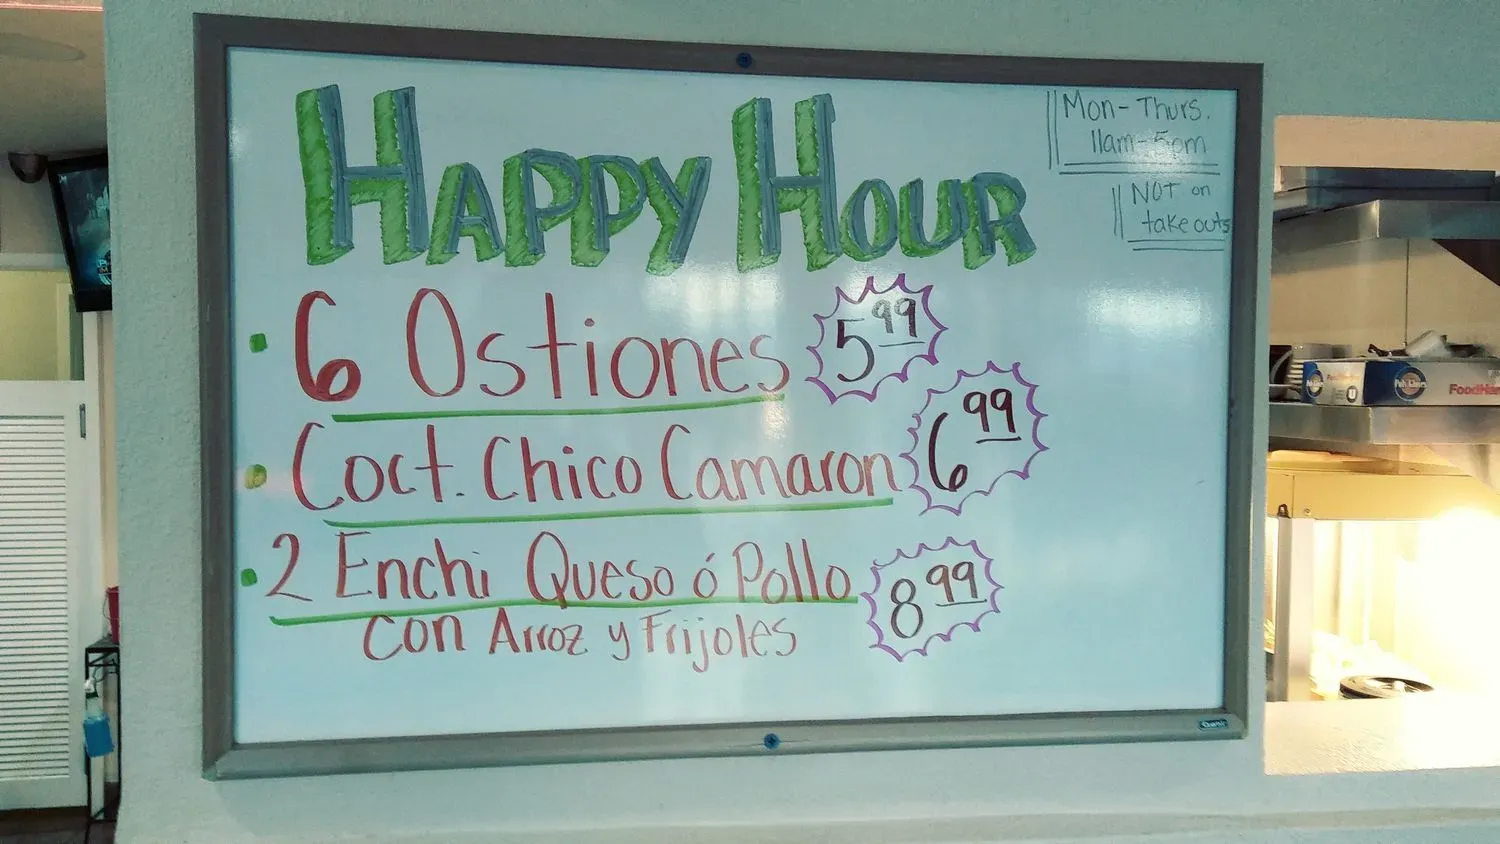 HAPPY HOUR
Mon-Thurs.
11am-5pm
NOT on
take outs
• 6 Ostiones 5.99
• Coct. Chico Camaron 6.99
• 2 Enchi Queso ó Pollo 8.99
con Arroz y Frijoles
Quartet